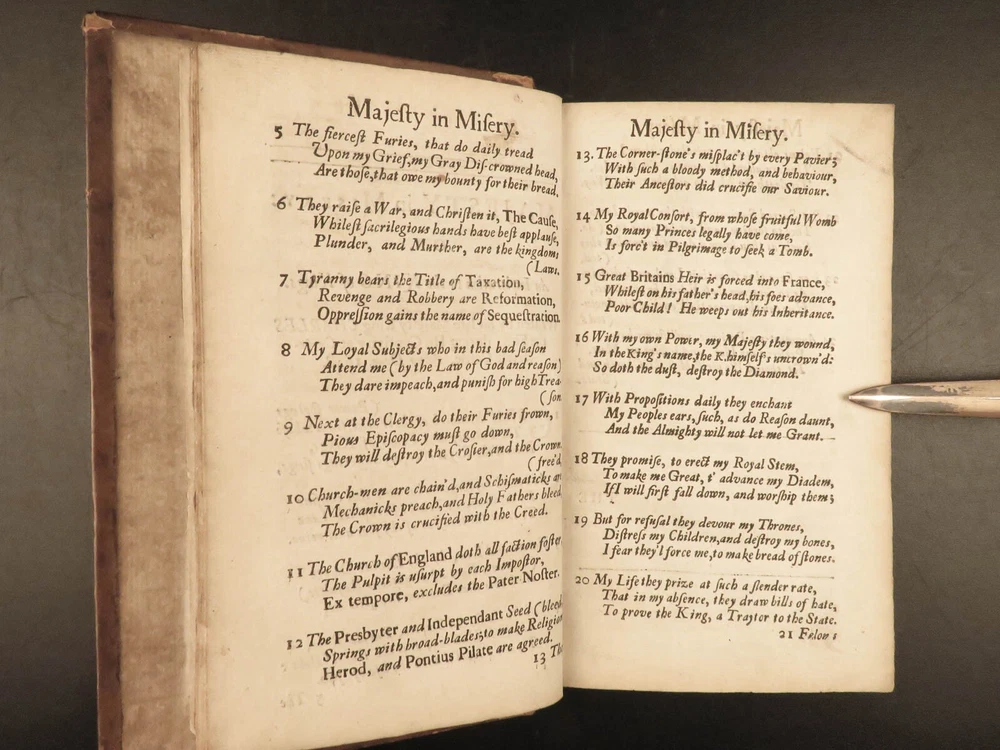 Majeſty in Miſery.
5 The fierceſt Furies, that do daily tread
Upon my Grief, my Gray Diſ-crowned head,
Are thoſe, that owe my bounty for their bread.
6 They raiſe a War, and Chriſten it, The Cauſe,
Whileſt ſacrilegious hands have beſt applauſe,
Plunder, and Murther, are the kingdoms
(Laws.
7 Tyranny bears the Title of Taxation,
Revenge and Robbery are Reformation,
Oppreſſion gains the name of Sequeſtration.
8 My Loyal Subjects who in this bad ſeaſon
Attend me (by the Law of God and reaſon)
They dare impeach, and puniſh for high Trea-
(ſon.
9 Next at the Clergy, do their Furies frown,
Pious Epiſcopacy muſt go down,
They will deſtroy the Croſier, and the Crown.
(free'd,
10 Church-men are chain'd, and Schiſmaticks ar
Mechanicks preach, and Holy Fathers bleed
The Crown is crucified with the Creed.
11 The Church of England doth all faction foſter,
The Pulpit is uſurpt by each Impoſtor,
Ex tempore, excludes the Pater Noſter.
12 The Presbyter and Independant Seed (bleed
Springs with broad-blades; to make Religion
Herod, and Pontius Pilate are agreed.
13 The
Majeſty in Miſery.
13. The Corner-ſtone's miſplac't by every Pavier;
With ſuch a bloody method, and behaviour,
Their Anceſtors did crucifie our Saviour.
14 My Royal Conſort, from whoſe fruitful Womb
So many Princes legally have come,
Is forc't in Pilgrimage to ſeek a Tomb.
15 Great Britains Heir is forced into France,
Whileſt on his father's head, his foes advance,
Poor Child! He weeps out his Inheritance.
16 With my own Power, my Majeſty they wound,
In the King's name, the K. himſelf's uncrown'd:
So doth the duſt, deſtroy the Diamond.
17 With Propoſitions daily they enchant
My Peoples ears, ſuch, as do Reaſon daunt,
And the Almighty will not let me Grant.
18 They promiſe, to erect my Royal Stem,
To make me Great, t' advance my Diadem,
If I will firſt fall down, and worſhip them;
19 But for refuſal they devour my Thrones,
Diſtreſs my Children, and deſtroy my bones,
I fear they'l force me, to make bread of ſtones.
20 My Life they prize at ſuch a ſlender rate,
That in my abſence, they draw bills of hate,
To prove the King, a Traytor to the State.
21 Felons